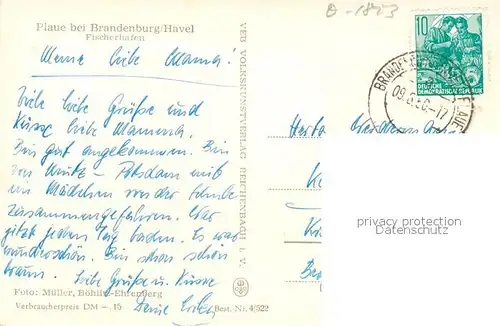 Plaue bei Brandenburg/Havel
Fischerhafen
Meine liebe Mama!
Viele liebe Grüße und
Küsse liebe Mamma.
Bin gut angekommen. Bin
von - Potsdam mit
Mädchen von der Schule
zusammengefahren. War
jetzt jeden Tag baden. Es war
wunderschön. Bin schon schön
braun. Liebe Grüße u. Küsse
Deine
Foto: Müller, Böhlitz-Ehrenberg
Verbraucherpreis DM —.15
Best. Nr. 4/522
VEB VOLKSKUNSTVERLAG REICHENBACH I. V.
10
DEUTSCHE
DEMOKRATISCHE REPUBLIK
privacy protection
Datenschutz